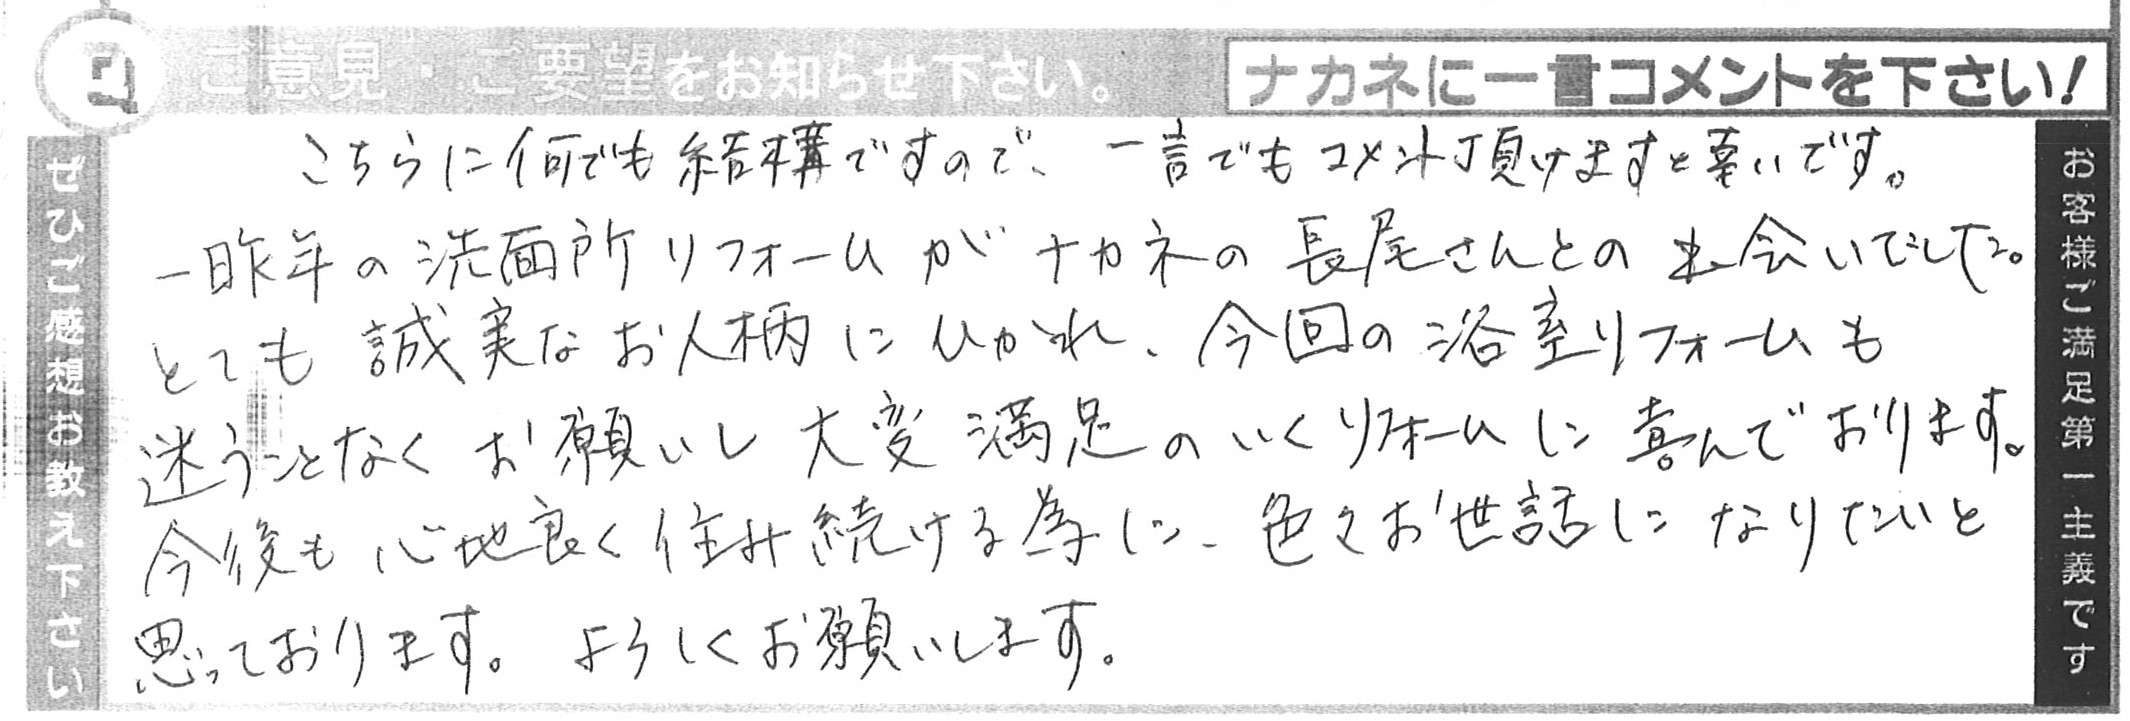 ご意見・ご要望をお知らせ下さい。
ナカネに一言コメントを下さい!
ぜひご感想お教え下さい
こちらに何でも結構ですので、一言でもコメント頂けますと幸いです。
一昨年の洗面所リフォームがナカネの長尾さんとの出会いでした。
とても誠実なお人柄にひかれ、今回の浴室リフォームも
迷うことなくお願いし大変満足のいくリフォームに喜んでおります。
今後も心地良く住み続ける為に、色々お世話になりたいと
思っております。よろしくお願いします。
お客様ご満足第一主義です